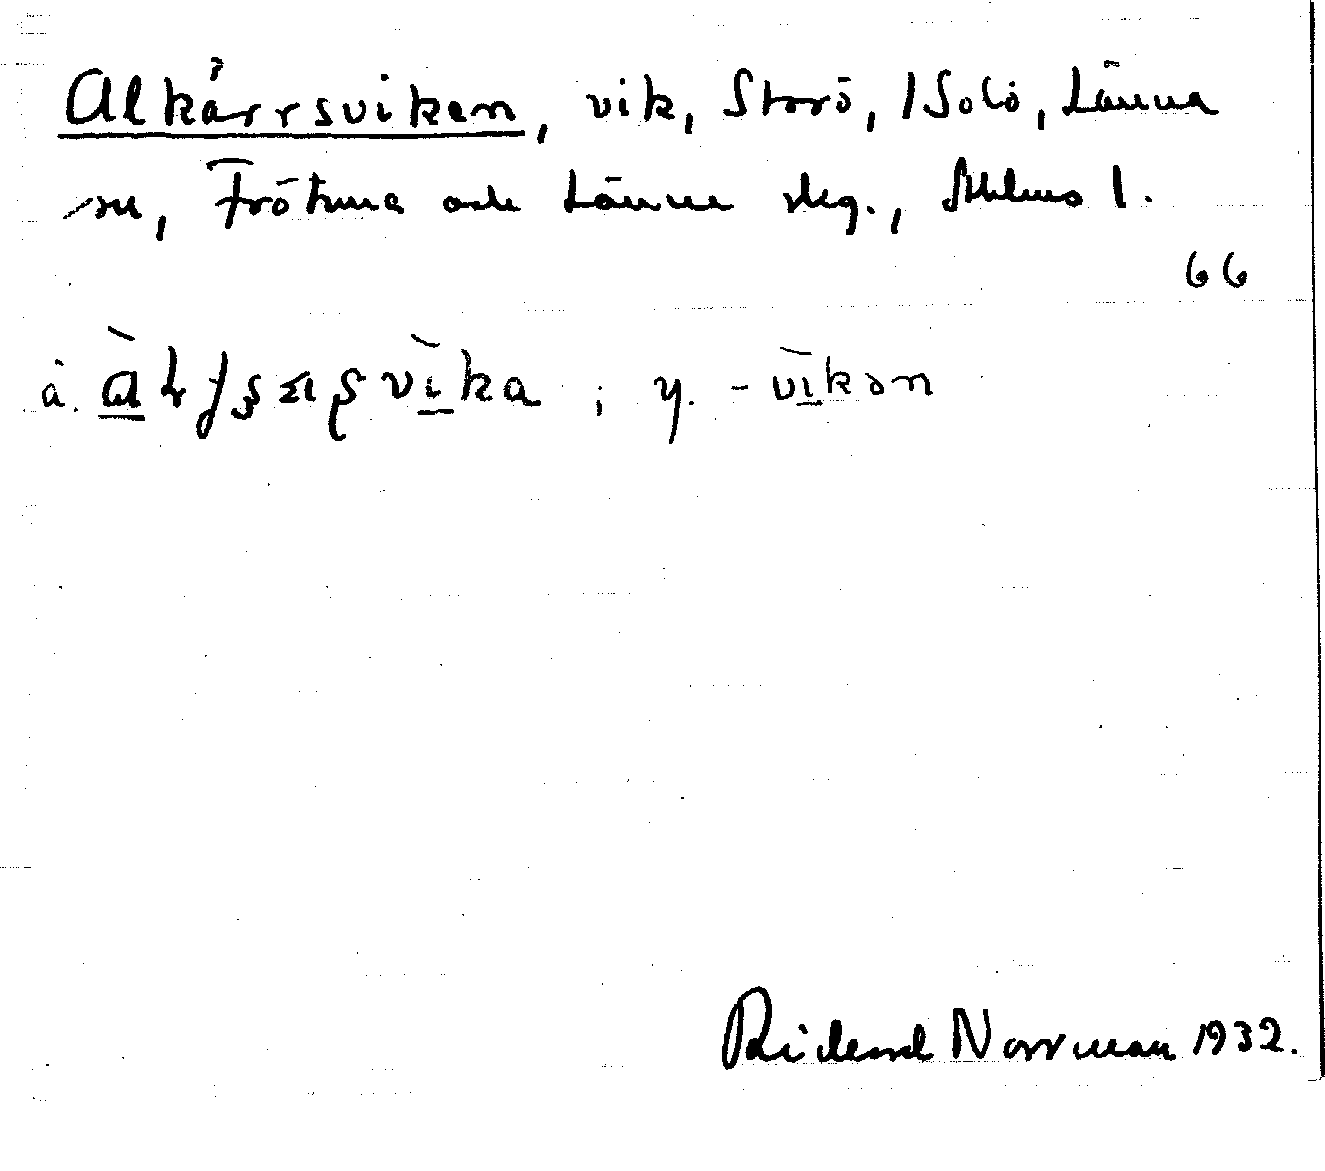 Alkärrsviken, vik, Storö, 1 Solö, Länna
sn, Frötuna och Länna skg., Sthlms l.
66
ä. vìka ; y. - vìkən
Rickard Norrman 1932.